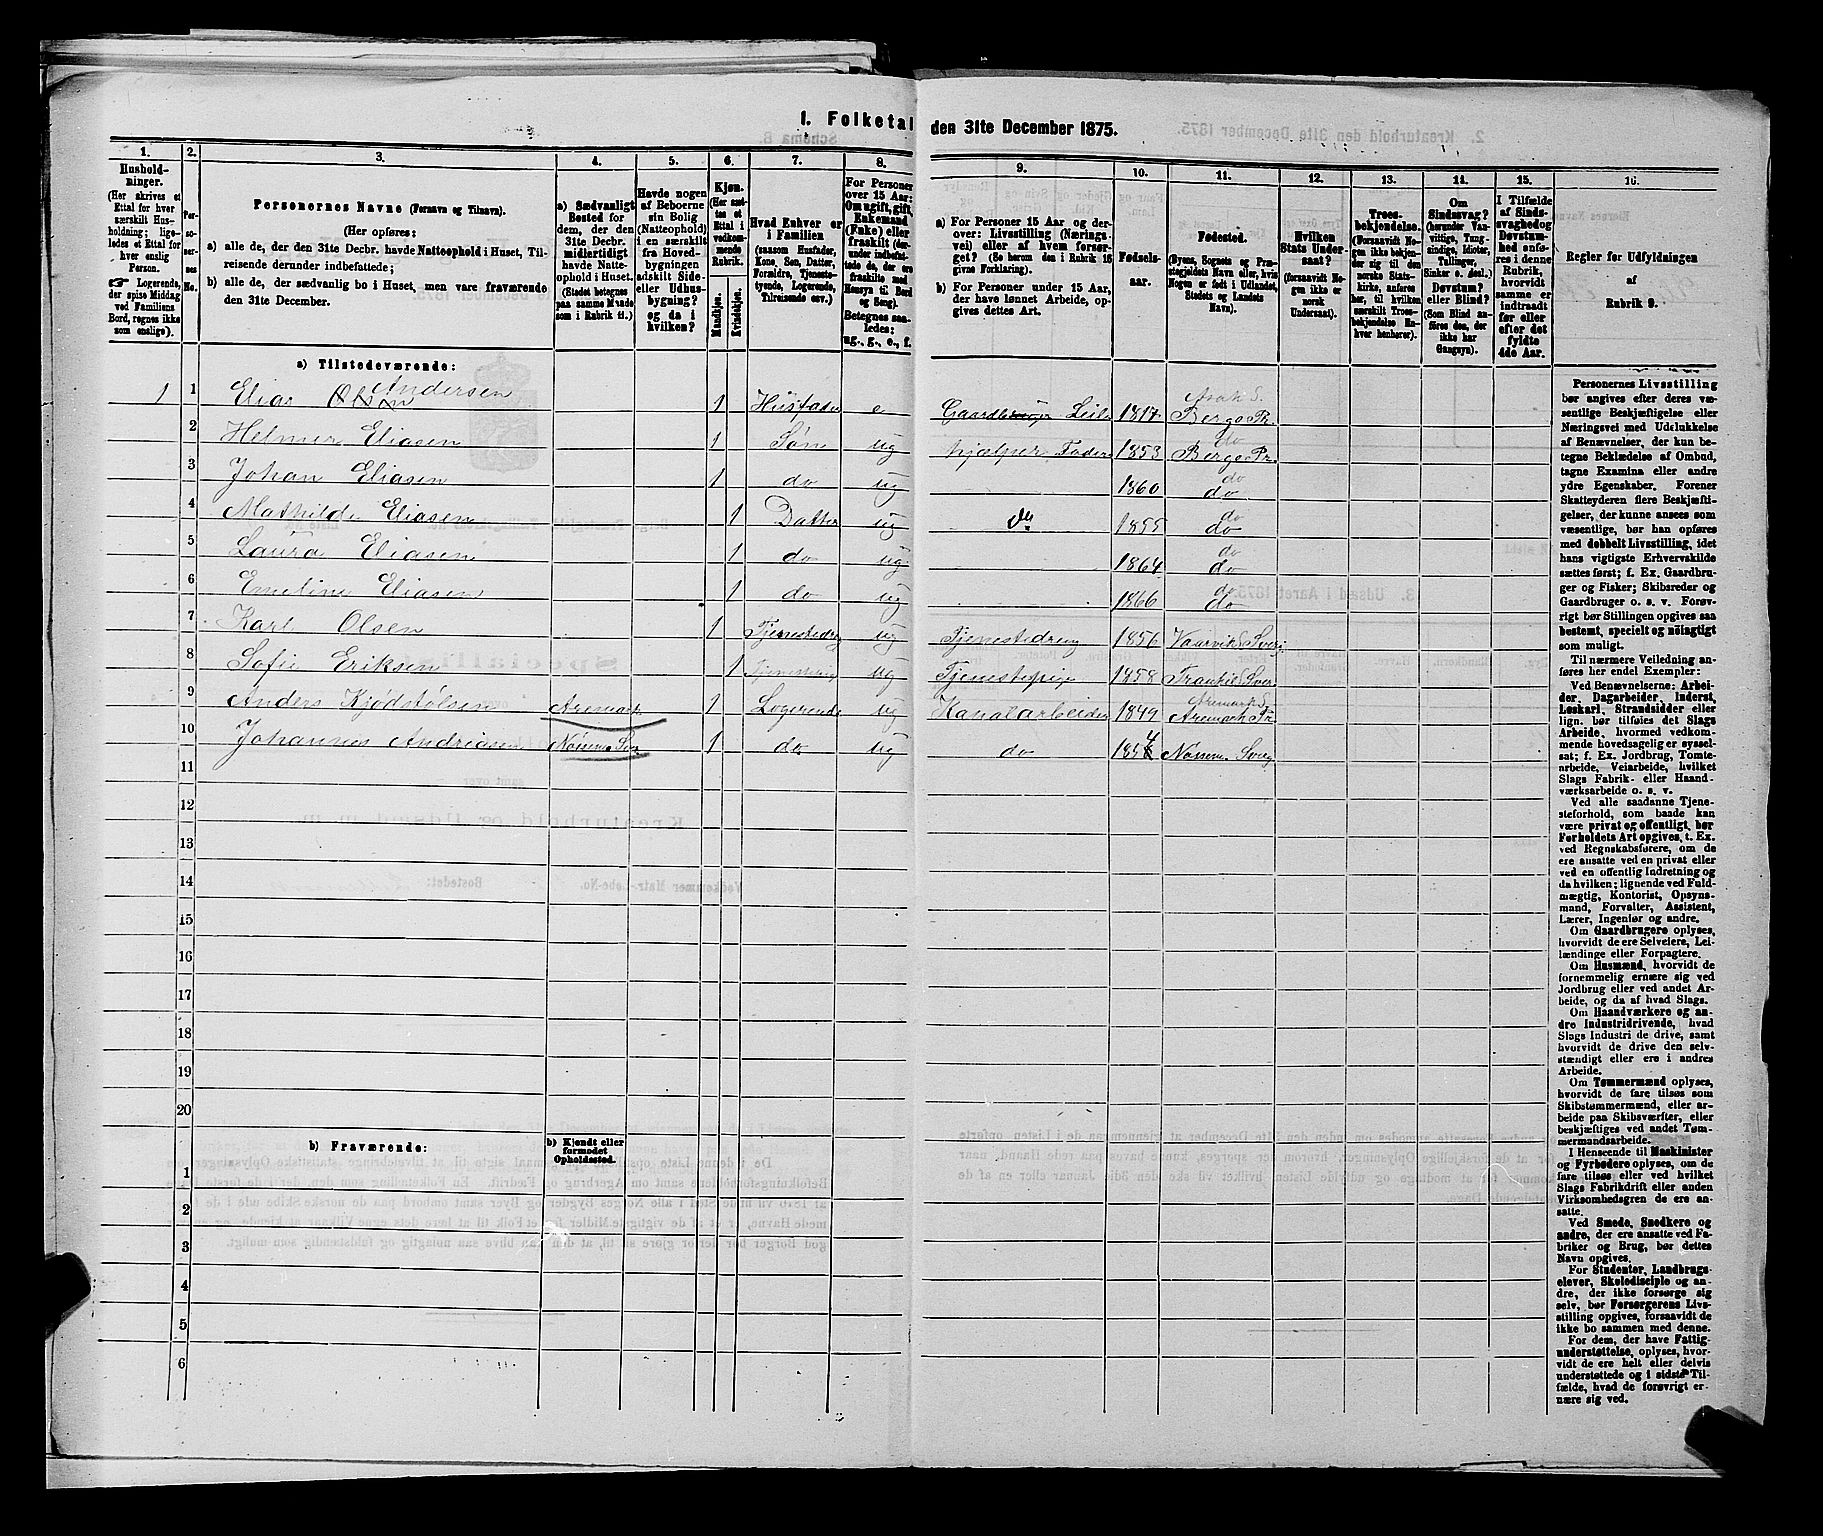 1. Folketal den 31te December 1875.
1.
2.
3.
4.
5.
6.
7.
8.
9.
10.
11.
12.
13.
14.
15.
16.
Hushold-
ninger.
(Her skrives et
Ettal for hver
særskilt Hus-
holdning; lige-
ledes et Ettal for
hver enslig
Person.
☛ Logerende,
der spise Middag
ved Familiens
Bord, regnes ikke
som enslige).
Per-
so-
ner-
nes
No.
Personernes Navne (Fornavn og Tilnavn).
(Her opføres:
a) alle de, der den 31te Decbr. havde Natteophold i Huset, Til-
reisende derunder indbefattede;
b) alle de, der sædvanlig bo i Huset, men vare fraværende
den 31te December.
a) Sædvanligt
Bosted for
dem, der den
31te Decbr.
midlertidigt
havde Natte-
ophold i Huset.
(Stedet betegnes
paa samme Maade
som i Rubrik 11.)
Havde nogen
af Beboerne
sin Bolig
(Natteophold)
i en særskilt
fra Hoved-
bygningen
adskilt Side-
eller Udhus-
bygning?
og da i
hvilken?
Kjøn.
(Her sæt-
tes et
Ettal i
vedkom-
mende
Rubrik.
Mandkjøn.
Kvindekjøn.
Hvad Enhver er
i Familien
(saasom Husfader,
Kone, Søn, Datter,
Forældre, Tjeneste-
tyende, Logerende,
Tilreisende osv.)
For Personer
over 15 Aar:
Om ugift, gift,
Enkemand
(Enke) eller
fraskilt (der-
under indbefat-
tede de, der ere
fraskilte med
Hensyn til Bord
og Seng).
Betegnes saa-
ledes:
ug., g., e., f.
a) For Personer 15 Aar og der-
over: Livsstilling (Nærings-
vei) eller af hvem forsør-
get? (Se herom den i Rubrik 16
givne Forklaring).
b) For Personer under 15 Aar,
der have lønnet Arbeide, op-
gives dettes Art.
Fødsels-
aar.
Fødested.
(Byens, Sognets og Præ-
stegjeldets Navn eller, hvis
Nogen er født i Udlandet,
Stedets og Landets
Navn).
Hvilken
Stats Under-
saat?
(forsaavidt No-
gen ikke er
norsk
Undersaat).
Troes-
bekjendelse.
(Forsaavidt No-
gen ikke bekjen-
der sig til den
norske Stats-
kirke, anføres
her, til hvilken
særskilt Troes-
bekjendelse En-
hver henhører).
Om
Sindssvag?
(herunder Van-
vittige, Tung-
sindige, Idioter,
Tullinger,
Sinker o. desl.)
Døvstum?
eller Blind?
(Som Blind an-
føres den, der
ikke har
Gangsyn).
I Tilfælde
af Sinds-
svaghed og
Døvstum-
hed anfø-
res i denne
Rubrik,
hvorvidt
samme er
indtraadt
før eller
efter det
fyldte
4de Aar.
Regler for Udfyldningen
af
Rubrik 9.
a) Tilstedeværende:
1 1 Elias Olsen Andersen 1 Husfader e Gaardbruger Leil. 1817 Asak S. Bergs Pr.
2 Helmer Eliasen 1 Søn ug hjælper Fader 1853 do Bergs Pr.
3 Johan Eliasen 1 do ug 1860 do do
4 Mathilde Eliasen 1 Datter ug 1855 do do
5 Laura Eliasen 1 do ug 1864 do do
6 Emeline Eliasen 1 do ug 1866 do do
7 Karl Olsen 1 Tjenestedreng ug Tjenestedreng 1856
8 Sofie Eriksen 1 Tjenestepige ug Tjenestepige 1858
9 Anders Kjødstølsen Aremark 1 Logerende ug Kanalarbeider 1849 Aremark S. Aremark Pr.
10 Johannes Andriasen 1 do ug do 1854
11
12
13
14
15
16
17
18
19
20
b) Fraværende:
b) Kjendt eller
formodet
Opholdssted.
1
2
3
4
5
6
Personernes Livsstilling
bør angives efter deres væ-
sentlige Beskjæftigelse eller
Næringsvei med Udelukkelse
af Benævnelser, der kun be-
tegne Beklædelse af Ombud,
tagne Examina eller andre
ydre Egenskaber. Forener
Skatteyderen flere Beskjæfti-
gelser, der kunne ansees som
væsentlige, bør han opføres
med dobbelt Livsstilling, idet
hans vigtigste Erhvervskilde
sættes først; f. Ex. Gaardbru-
ger og Fisker; Skibsreder og
Gaardbruger o. s. v. Forøv-
rigt bør Stillingen opgives saa
bestemt, specielt og nöiagtigt
som muligt.
Til nærmere Veiledning an-
føres her endel Exempler:
Ved Benævnelserne: Arbei-
der, Dagarbeider, Inderst,
Løskarl, Strandsidder eller
lign. bør tilføies det Slags
Arbeide, hvormed vedkom-
mende hovedsagelig er syssel-
sat; f. Ex. Jordbrug, Tomte-
arbeide, Veiarbeide, hvilket
Slags Fabrik- eller Haand-
værksarbeide o. s. v.
Ved alle saadanne Tjene-
steforhold, som baade kan
være privat og offentligt, bør
Forholdets Art opgives, t. Ex.
ved Regnskabsførere, om de
ere ansatte ved en privat eller
ved en offentlig Indretning og
da hvilken; lignende ved Fuld-
mægtig, Kontorist, Opsyns-
mand, Forvalter, Assistent,
Lærer, Ingeniør og andre.
Om Gaardbrugere oplyses,
hvorvidt de ere Selveiere, Lei-
lændinge eller Forpagtere.
Om Husmænd, hvorvidt de
fornemmelig ernære sig ved
Jordbrug eller ved andet Ar-
beide, og da af hvad Slags.
Om Haandværkere og an-
dre Industridrivende, hvad
Slags Industri de drive, samt
hvorvidt de drive den selv-
stændigt eller ere i andres
Arbeide.
Om Tømmermænd oplyses,
hvorvidt de fare tilsøs som
Skibstømmermænd, eller ar-
beide paa Skibsværfter, eller
beskjæftiges ved andet Tøm-
mermandsarbeide.
I Henseende til Maskinister
og Fyrbødere oplyses, om de
fare tilsøs eller ved hvilket
Slags Fabrikdrift eller anden
Virksomhedsgren de ere an-
satte.
Ved Smede, Snedkere og
andre, der ere ansatte ved Fa-
briker og Brug, bør dettes
Navn opgives.
For Studenter, Landbrugs-
elever, Skoledisciple og an-
dre, der ikke forsørge sig
selv, bør Forsørgerens Livs-
stilling opgives, forsaavidt de
ikke bo sammen med denne.
For dem, der have Fattig-
understøttelse, oplyses, hvor-
vidt de ere helt eller delvis
understøttede og i sidste Til-
fælde, hvad de forøvrigt er-
nære sig ved.